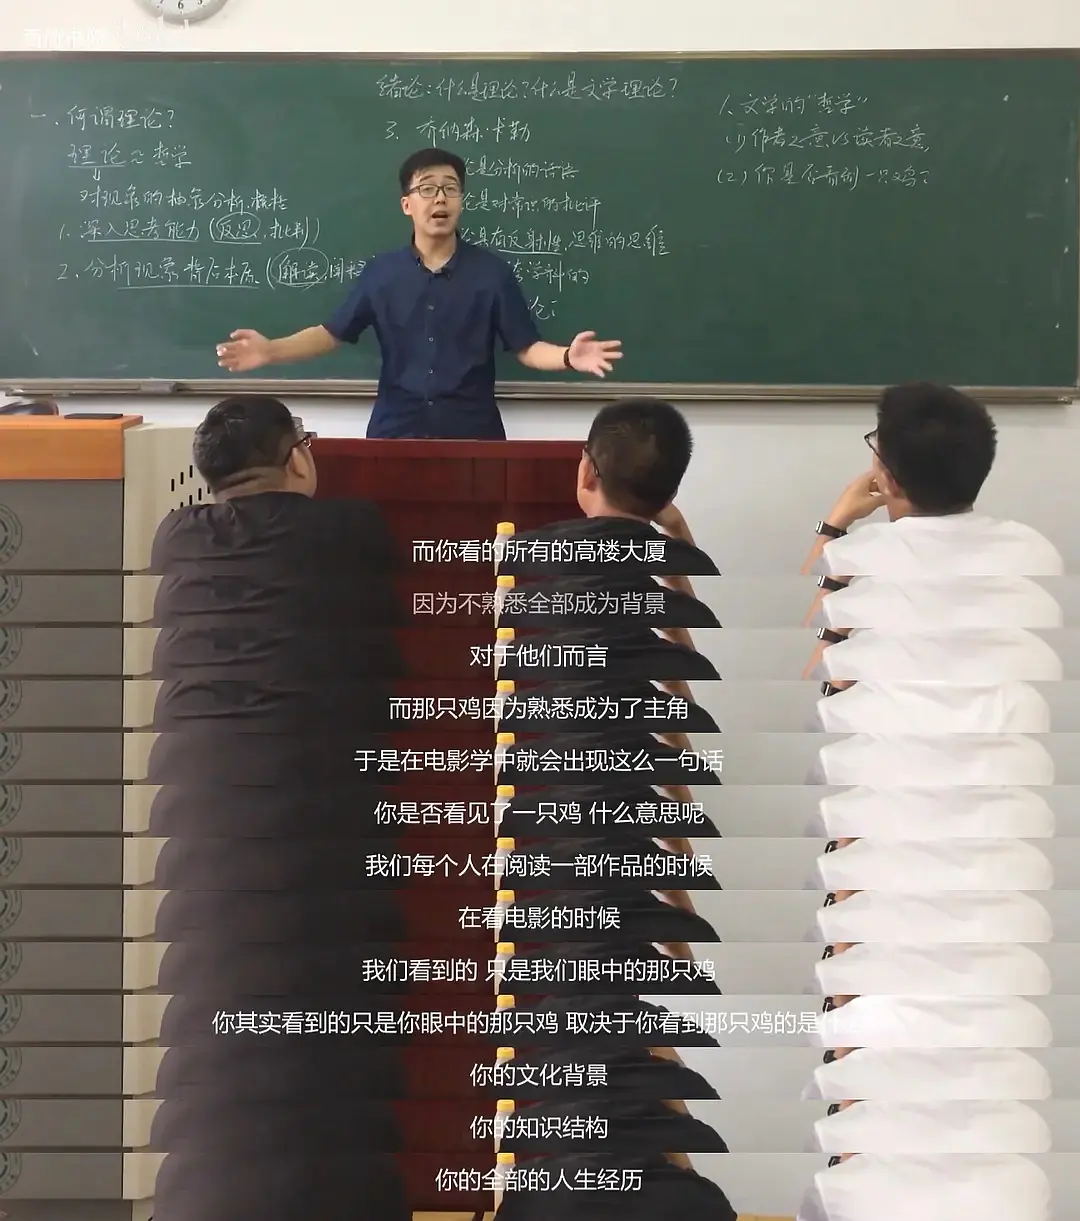 绪论：什么是理论？什么是文学理论？
一、何谓理论？
理论≈哲学
对现象的抽象/分析、概括
1. 深入思考能力（反思、批判）
2. 分析现象背后本质（解读、阐释
3. 乔纳森·卡勒
论是分析的话语
论是对常识的批评
论具有反射性，思维的思维
跨学科的
论：
1、文学的“哲学”
(1) 作者之意 VS 读者之意
(2) 你是否看到一只鸡？
而你看的所有的高楼大厦
因为不熟悉全部成为背景
对于他们而言
而那只鸡因为熟悉成为了主角
于是在电影学中就会出现这么一句话
你是否看见了一只鸡 什么意思呢
我们每个人在阅读一部作品的时候
在看电影的时候
我们看到的 只是我们眼中的那只鸡
你其实看到的只是你眼中的那只鸡 取决于你看到那只鸡的是什
你的文化背景
你的知识结构
你的全部的人生经历